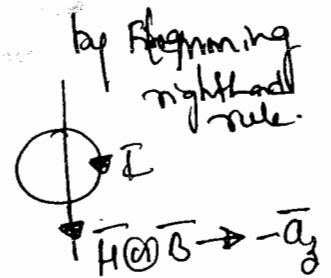 by Flemming
righthand
rule.
I
H̅ (or) B̅ → -a̅z